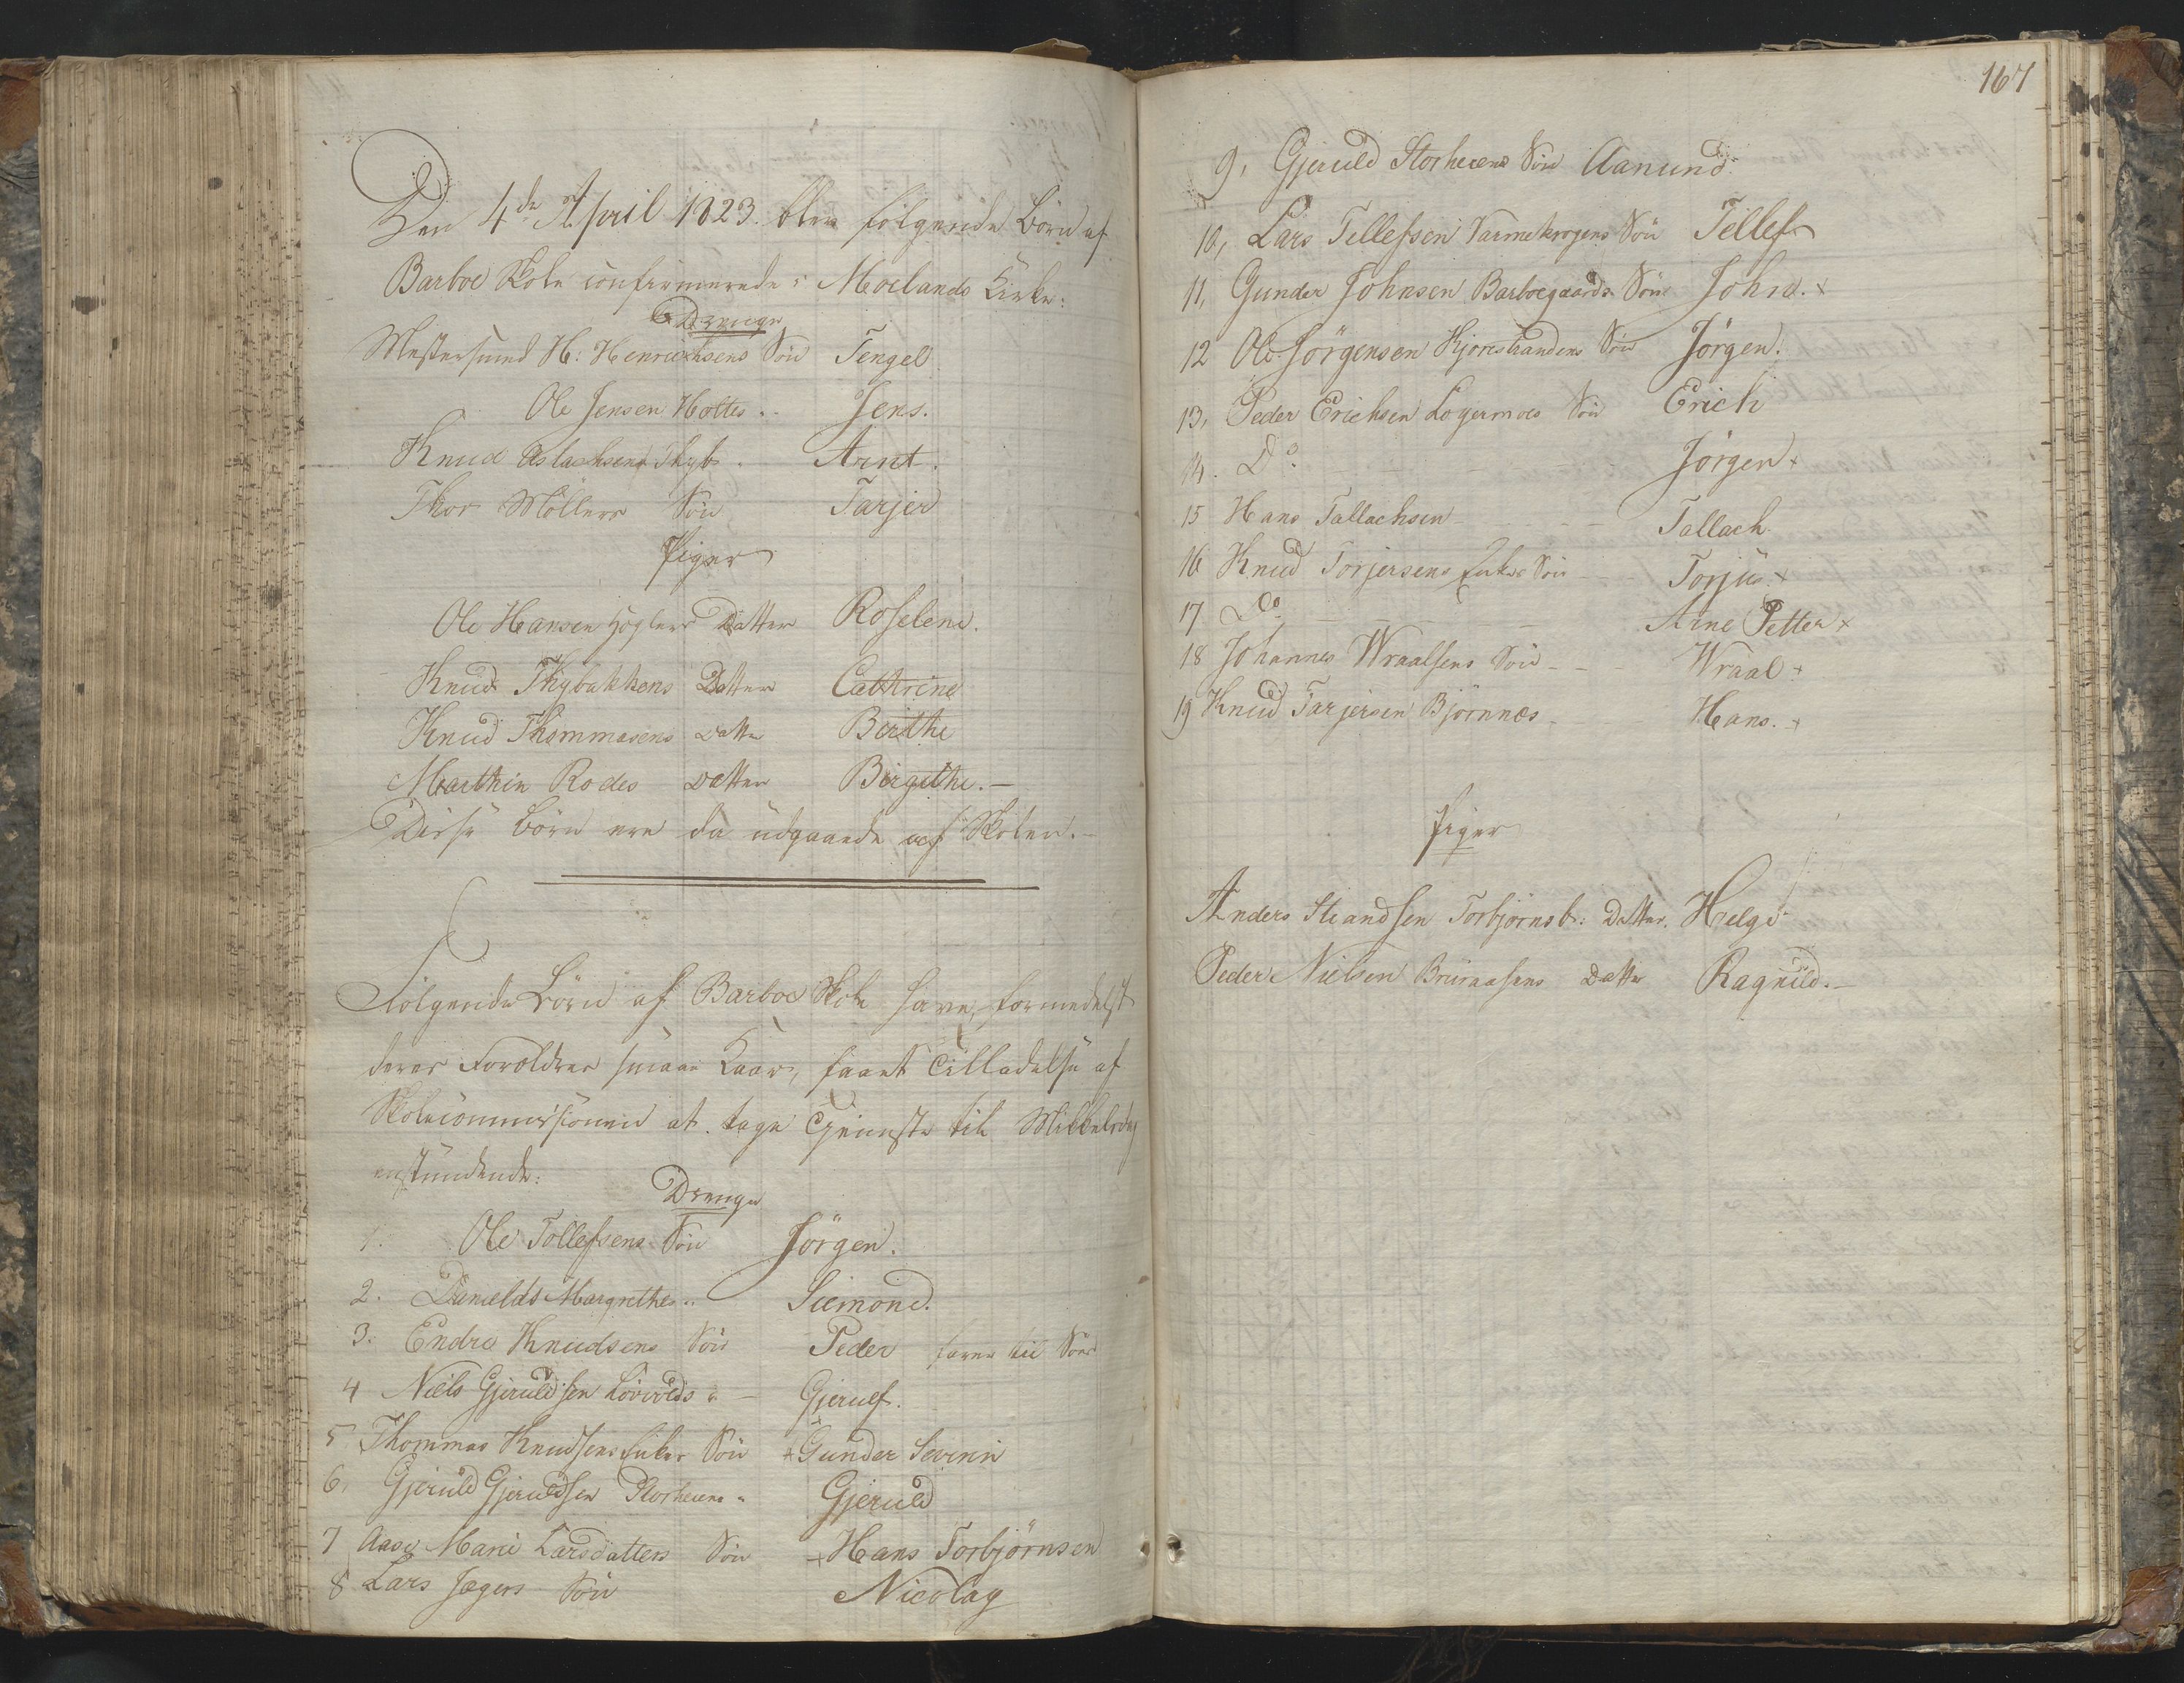 Den 4de April 1823. blev følgende Børn af
Barboe Skole confirmerede i Moelands Kirke:
Drenge
Mestersmed H: Henrichsens Søn Tengel
Ole Jensen Holtes " Jens.
Knud Aslachsens Thyb. Arnt.
Thor Møllers Søn Tarjer
Piger
Ole Hansen Datter Roselene.
Knud Thybakkens Datter Cathrine
Knud Thommasens Datter Birthe
Marthin Rodes Datter Birgithe.—
Disse Børn ere da udgaaede af Skolen.—
Følgende Børn af Barboe Skole have, formedelst
deres Forældres smaae Kaar, faaet Tilladelse af
Skolecommissionen at tage Tjeneste til Mikkelsdag
anstundende:
Drenge
1. Ole Tollefsens Søn Jörgen.
2. Margrethes " Siemond.
3. Endre Knudsens Søn Peder farer til Søes
4 Niels Gjeruldsen Løvolds " — Gjeruf.
5 Thommas Knudsens Enkes Søn + Gunder Severin
6, Gjeruld Gjeruldsen Storheiens " Gjeruld
7 Aase Marie Larsdatters Søn + Hans Torbjørnsen
8 Lars Jægers Søn Nicolay
167
9, Gjeruld Storheiens Søn Aanund.
10, Lars Tellefsen Søn Tellef
11, Gunder Johnsen Barboegaards Søn John. +
12 Ole Jörgensen Søn Jörgen.
13, Peder Erichsen Løgermoes Søn Erich
14. Do — — — Jörgen +
15 Hans Tallachsen — — Tallach
16 Knud Torjersens Enkes Søn — Torjus +
17 Do — — Arne Petter +
18 Johannes Wraalsens Søn — — Wraal +
19 Knud Tarjersen Bjørnnes — Hans. +
Piger
Anders Strandsen Torbjørnsb: Datter. Helge
Peder Nielsen Datter Ragnild.—